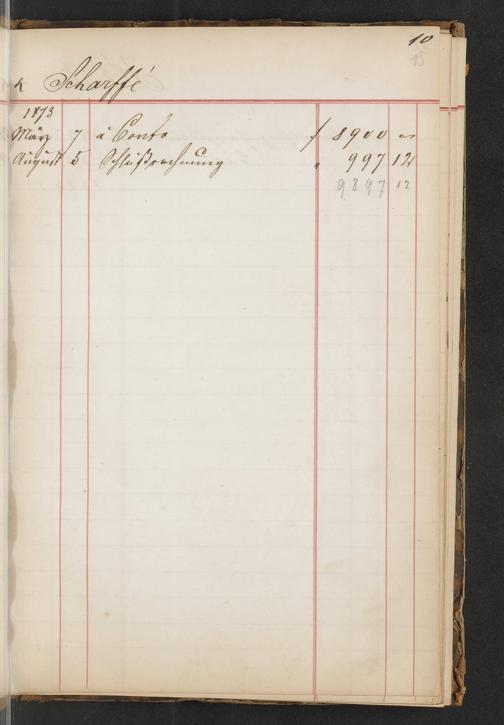 10
15
Scharffé
1873
März 7 à Conto f 8900 "
August 5 Schlußrechnung " 997 12
9897 12